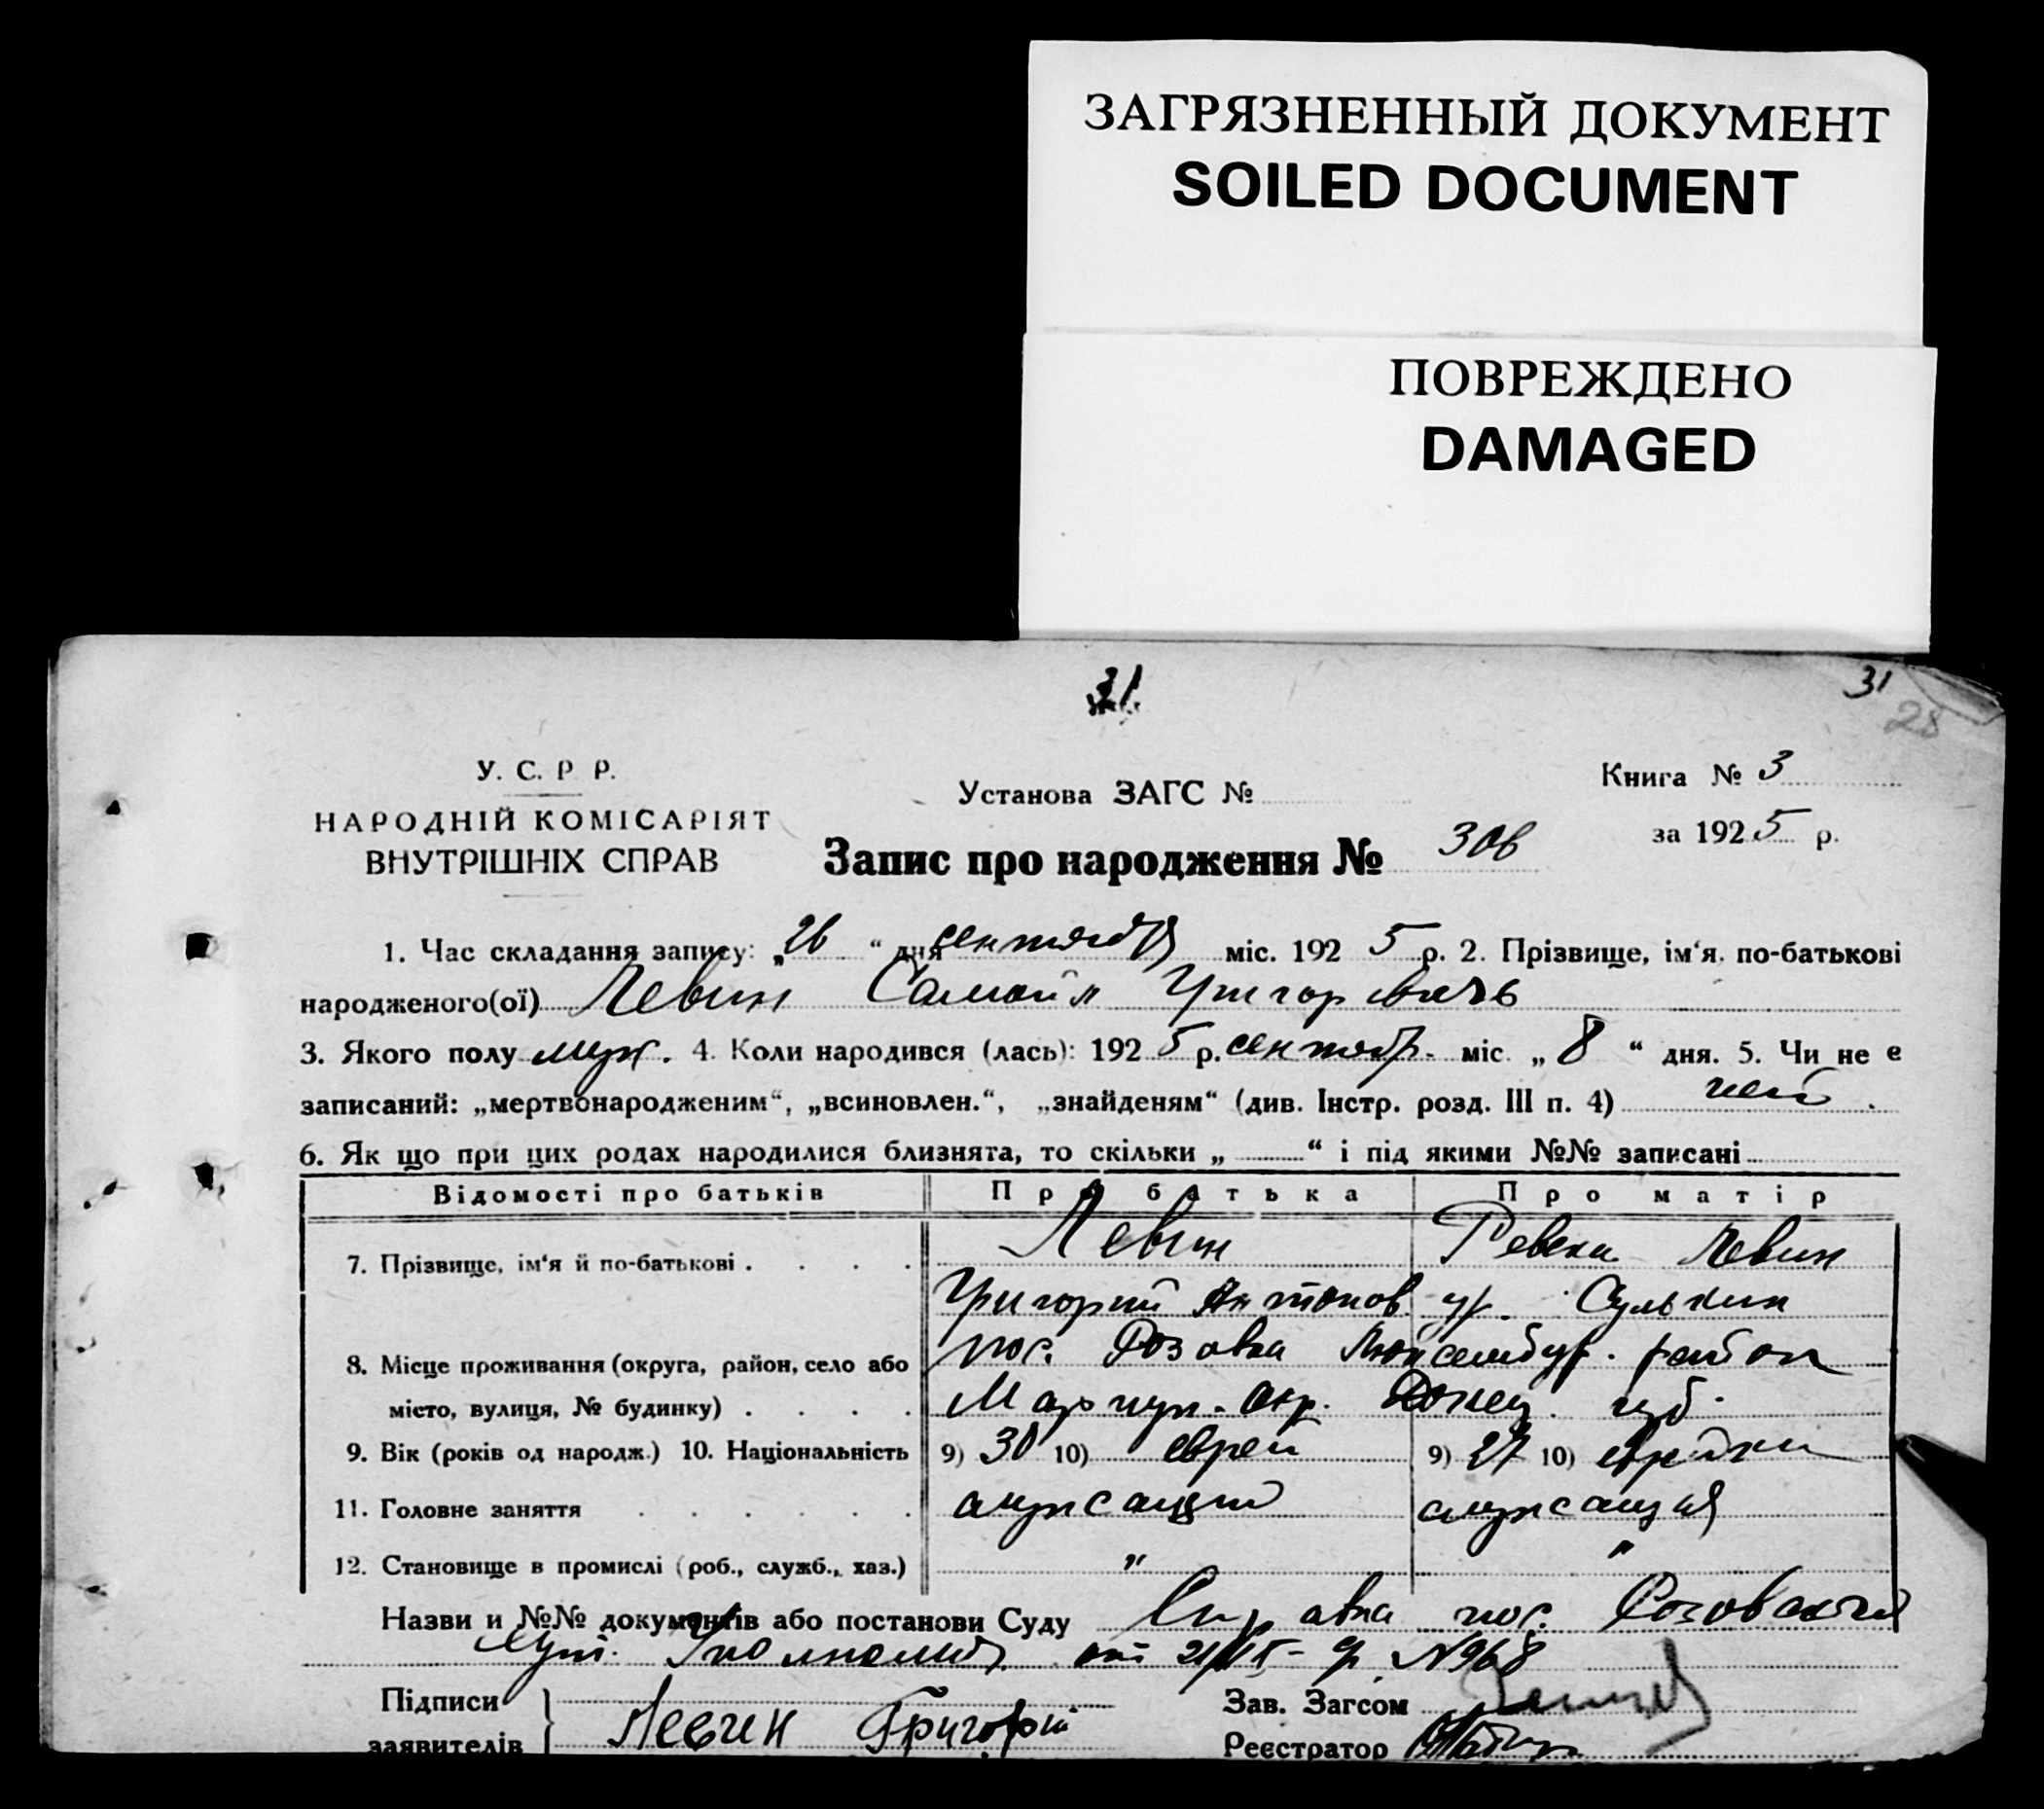 ЗАГРЯЗНЕННЫЙ ДОКУМЕНТ
SOILED DOCUMENT
ПОВРЕЖДЕНО
DAMAGED
31
31
28
У. С. Р Р.
НАРОДНІЙ КОМІСАРІЯТ
ВНУТРІШНІХ СПРАВ
Установа ЗАГС №
Запис про народження № 306
Книга № 3
за 1925 р.
1. Час складання запису: „26“ дня сентября міс. 1925 р. 2. Прізвище, ім‘я, по-батькові
народженого(ої) Левин Самойл Григорьевичь
3. Якого полу муж. 4. Коли народився (лась): 1925 р. сентябр. міс. „8“ дня. 5. Чи не є
записаний: „мертвонародженим“, „всиновлен.“, „знайденям“ (див. Інстр. розд. III п. 4) нет.
6. Як що при цих родах народилися близнята, то скільки „ “ і під якими №№ записані
Відомості про батьків Про батька Про матір
7. Прізвище, ім‘я й по-батькові . . . . Левин Ревека Левин
Григорий Антонов ур. Сулькин
8. Місце проживання (округа, район, село або пос. Розовка Люксембур. район
місто, вулиця, № будинку) . . . . Мариуп. Окр. Донец. губ.
9. Вік (років од народж.) 10. Національність 9) 30 10) еврей 9) 27 10) еврейка
11. Головне заняття . . . . . . служащий служащая
12. Становище в промислі (роб., служб., хаз.) " "
Назви и №№ документів або постанови Суду Справка пос. Розовского
от 21/IX- №968
Підписи
заявителів Левин Григорий
Зав. Загсом
Реєстратор